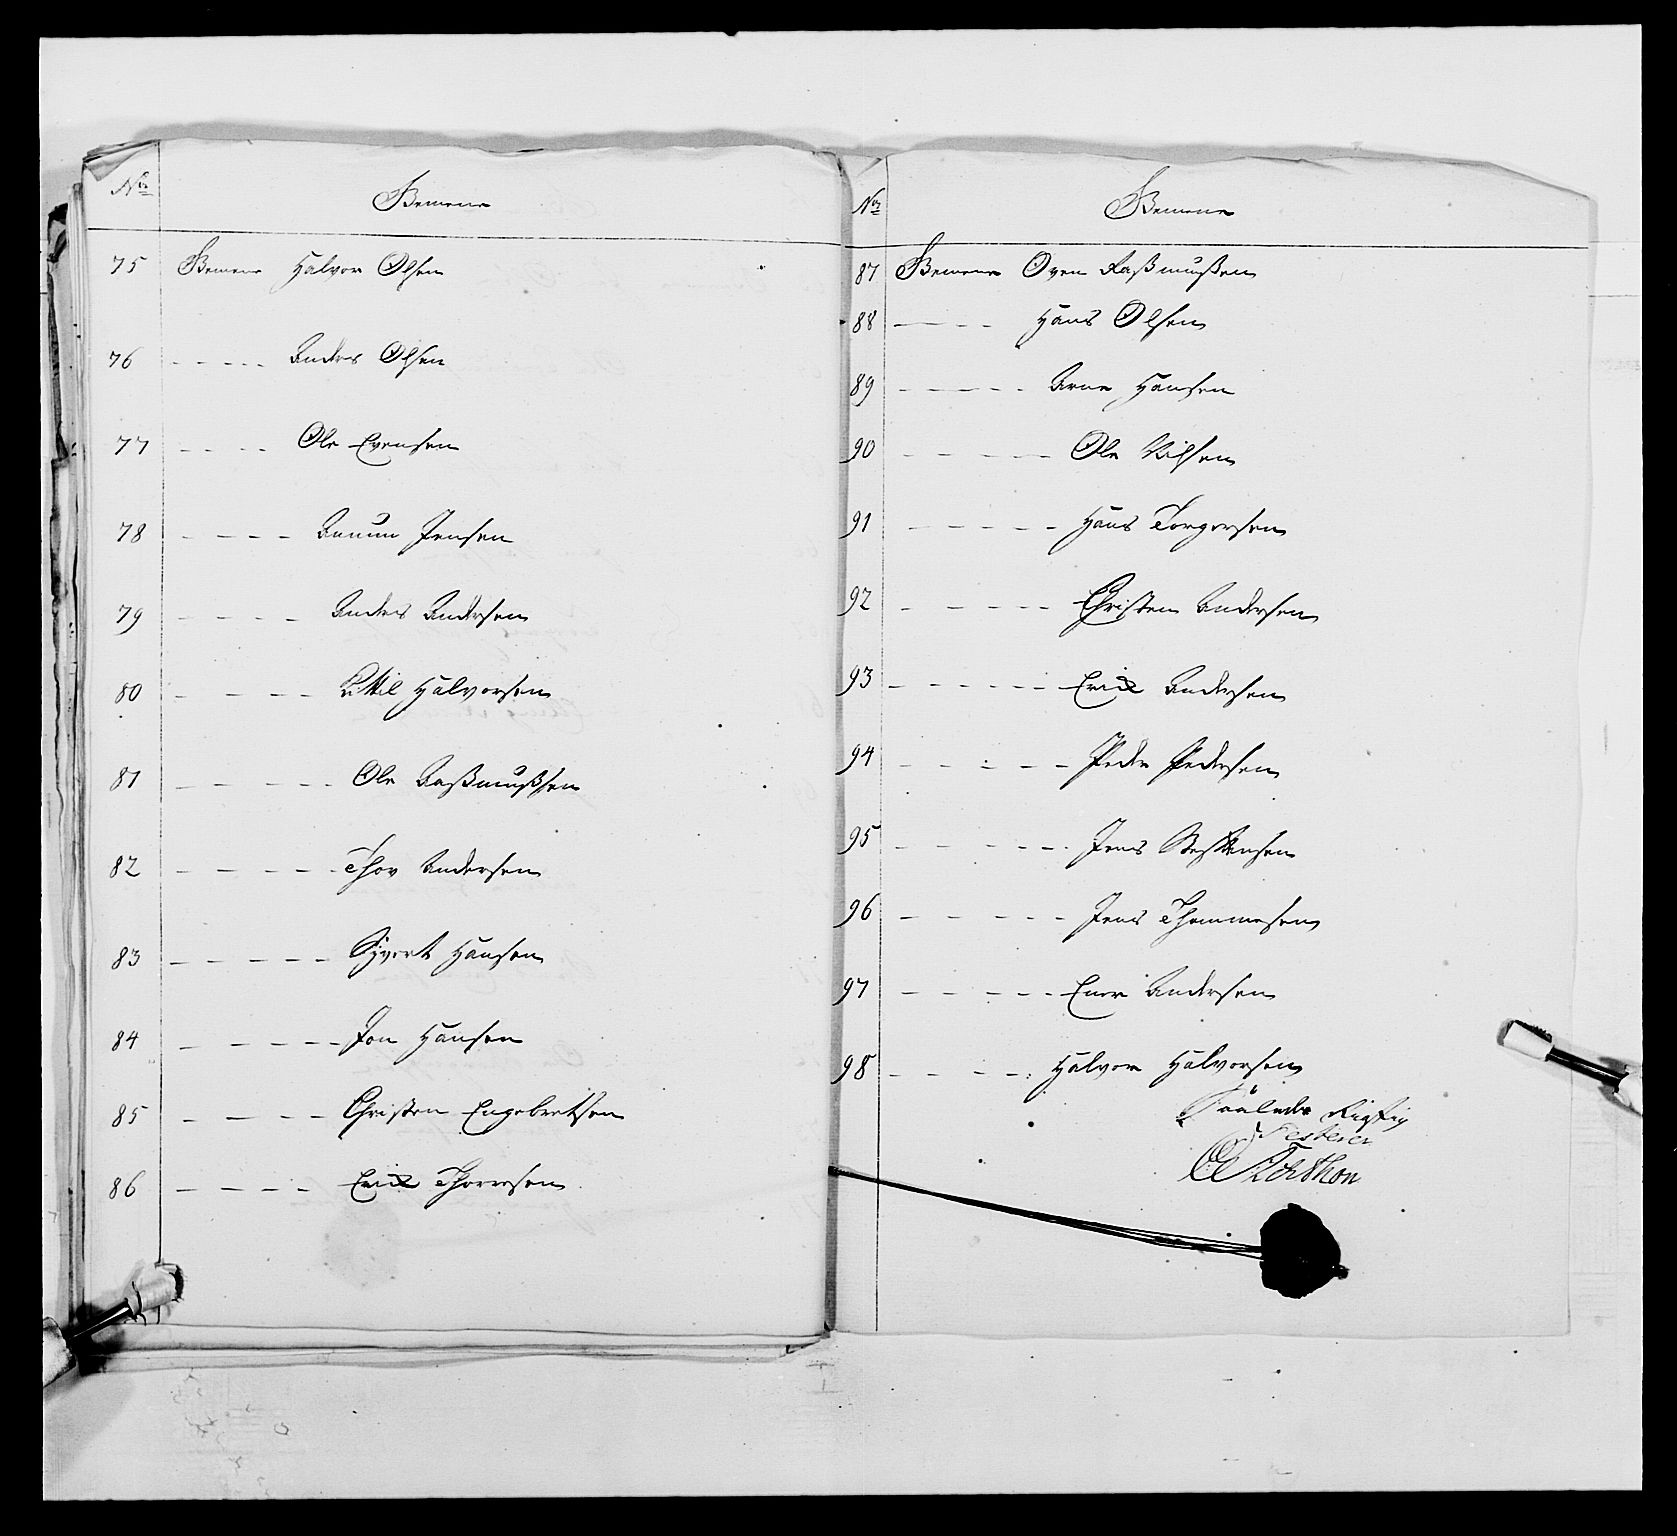 No
Bemene
75 Bemene Halvor Olsen
76 - - - - Anders Olsen
77 - - - - Ole Evensen
78 - - - - Jensen
79 - - - - Anders Andersen
80 - - - - Kittil Halvorsen
81 - - - - - Ole Raßmußsen
82 - - - - - Thor Andersen
83 - - - - - Syvert Hansen
84 - - - - - Jon Hansen
85 - - - - Christen Engebretsen
86 - - - - Erich Thoresen
No
Bemene
87 Bemene Oven Raßmußen
88 - - - Hans Olsen
89 - - - - - Arne Hansen
90 - - - - - Ole Nilsen
91 - - - - - Hans Torgersen
92 - - - - Christen Andersen
93 - - - - - - Erich Andersen
94 - - - - - Peder Pedersen
95 - - - - - Jens
96 - - - - - Jens Thommesen
97 - - - - - Ener Andersen
98 - - - - Halvor Halvorsen
Saaledes Rigtig
Testerer